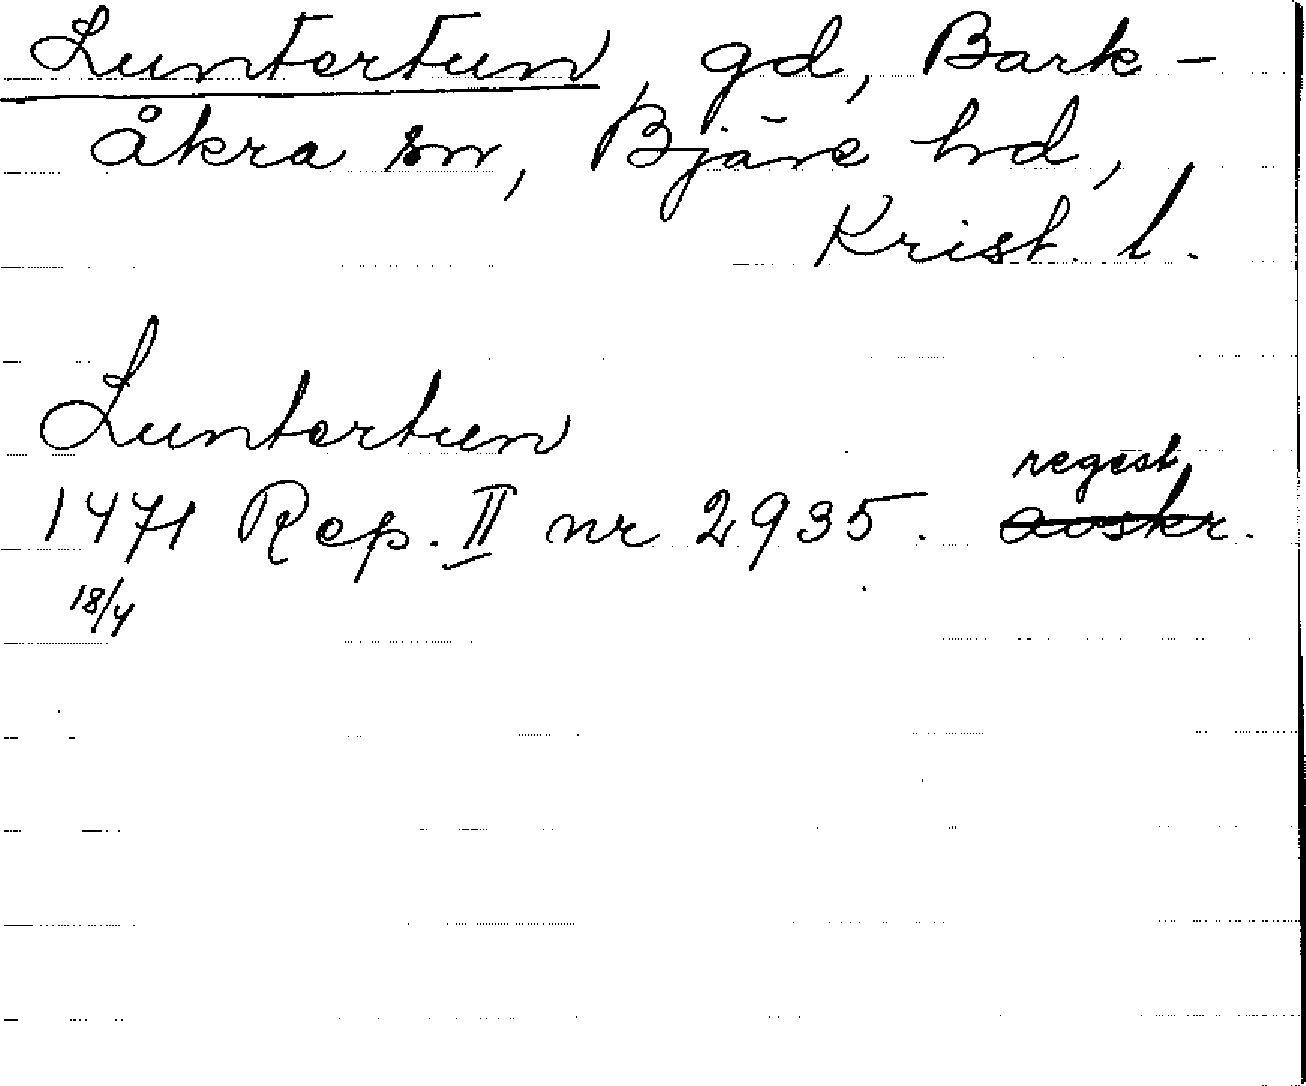 Luntertun, gd, Bark-
åkra sn, Bjäre hd,
Krist. l.
Luntertun
regest
1471 Rep. II nr 2935. avskr.
18/4